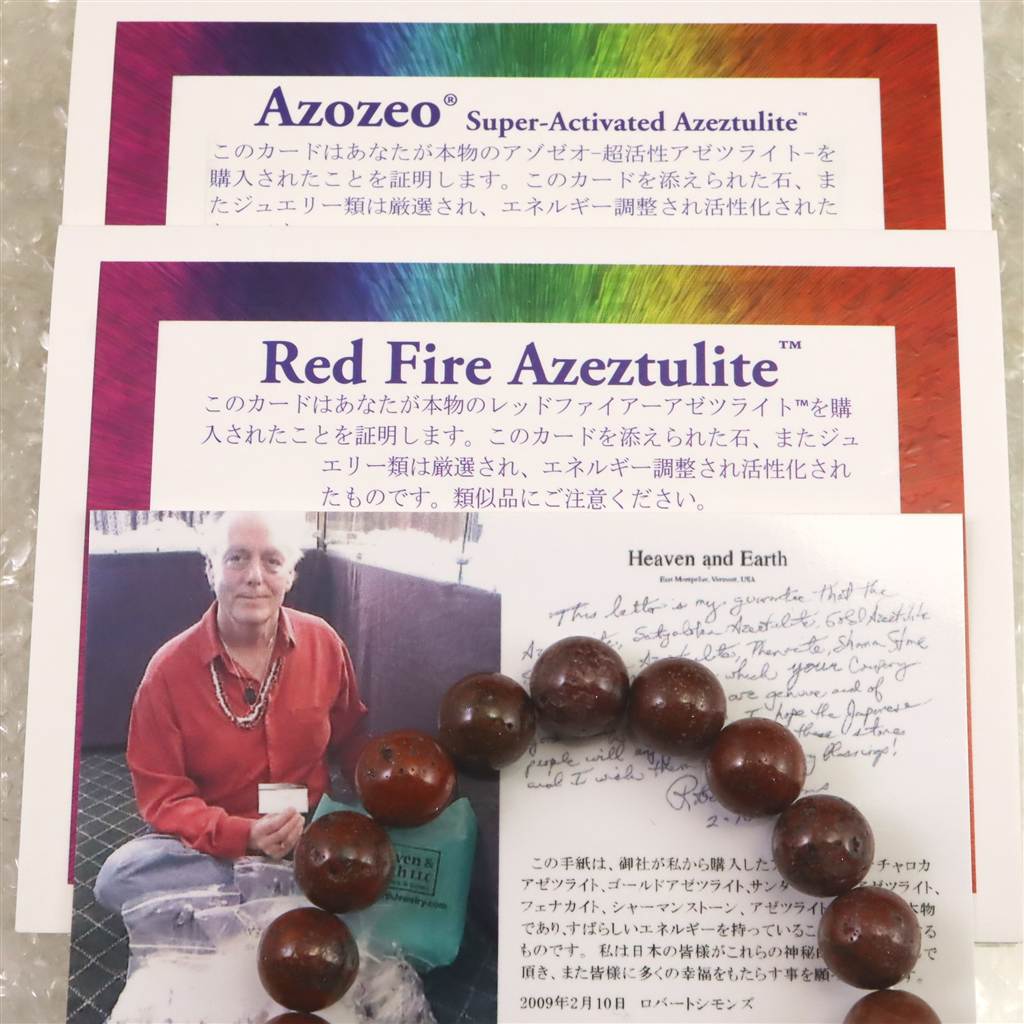 Azozeo® Super-Activated Azeztulite™
このカードはあなたが本物のアゾゼオ-超活性アゼツライト-を
購入されたことを証明します。このカードを添えられた石、ま
たジュエリー類は厳選され、エネルギー調整され活性化された
Red Fire Azeztulite™
このカードはあなたが本物のレッドファイアーアゼツライト™を購
入されたことを証明します。このカードを添えられた石、またジュ
エリー類は厳選され、エネルギー調整され活性化され
たものです。類似品にご注意ください。
Heaven and Earth
East Montpelier, Vermont, USA
This letter is my guarantee that the
Satyaloka Azeztulite, Gold Azeztulite
Phenacite, Shaman Stone
which your Company
are genuine and of
I hope the Japanese
these stones
people will
and I wish them blessings!
この手紙は、御社が私から購入した チャロカ
アゼツライト、ゴールドアゼツライト、サンダ アゼツライト、
フェナカイト、シャーマンストーン、アゼツライト 本物
であり、すばらしいエネルギーを持っているこ する
ものです。 私は日本の皆様がこれらの神秘 で
頂き、また皆様に多くの幸福をもたらす事を願 す。
2009年2月10日 ロバートシモンズ